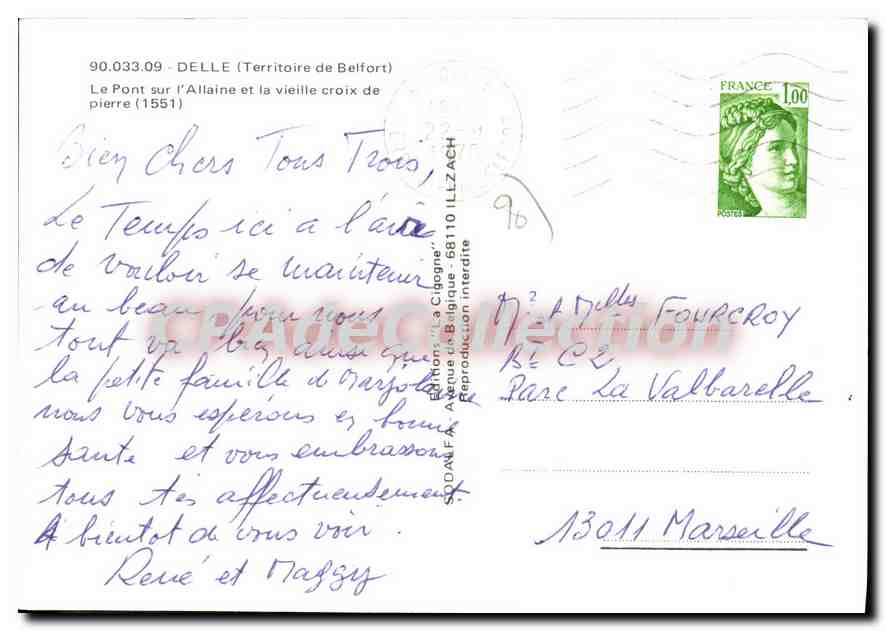 90.033.09 - DELLE (Territoire de Belfort)
Le Pont sur l'Allaine et la vieille croix de
pierre (1551)
Bien chers Tous Trois,
Le Temps ici a l'air
de vouloir se maintenir
au beau, pour nous
tout va bien ainsi que
la petite famille de Marjolaine
nous vous espérons en bonne
santé et vous embrassons
tous très affectueusement.
A bientot de vous voir.
René et Maggy
SODALFA - Avenue de Belgique - 68110 ILLZACH
Editions "La Cigogne"
Reproduction interdite
FRANCE 1,00
POSTES
90
Mr & Melles FOURCROY
Bt C2
Parc La Valbarelle
13011 Marseille
CPAdeCollection